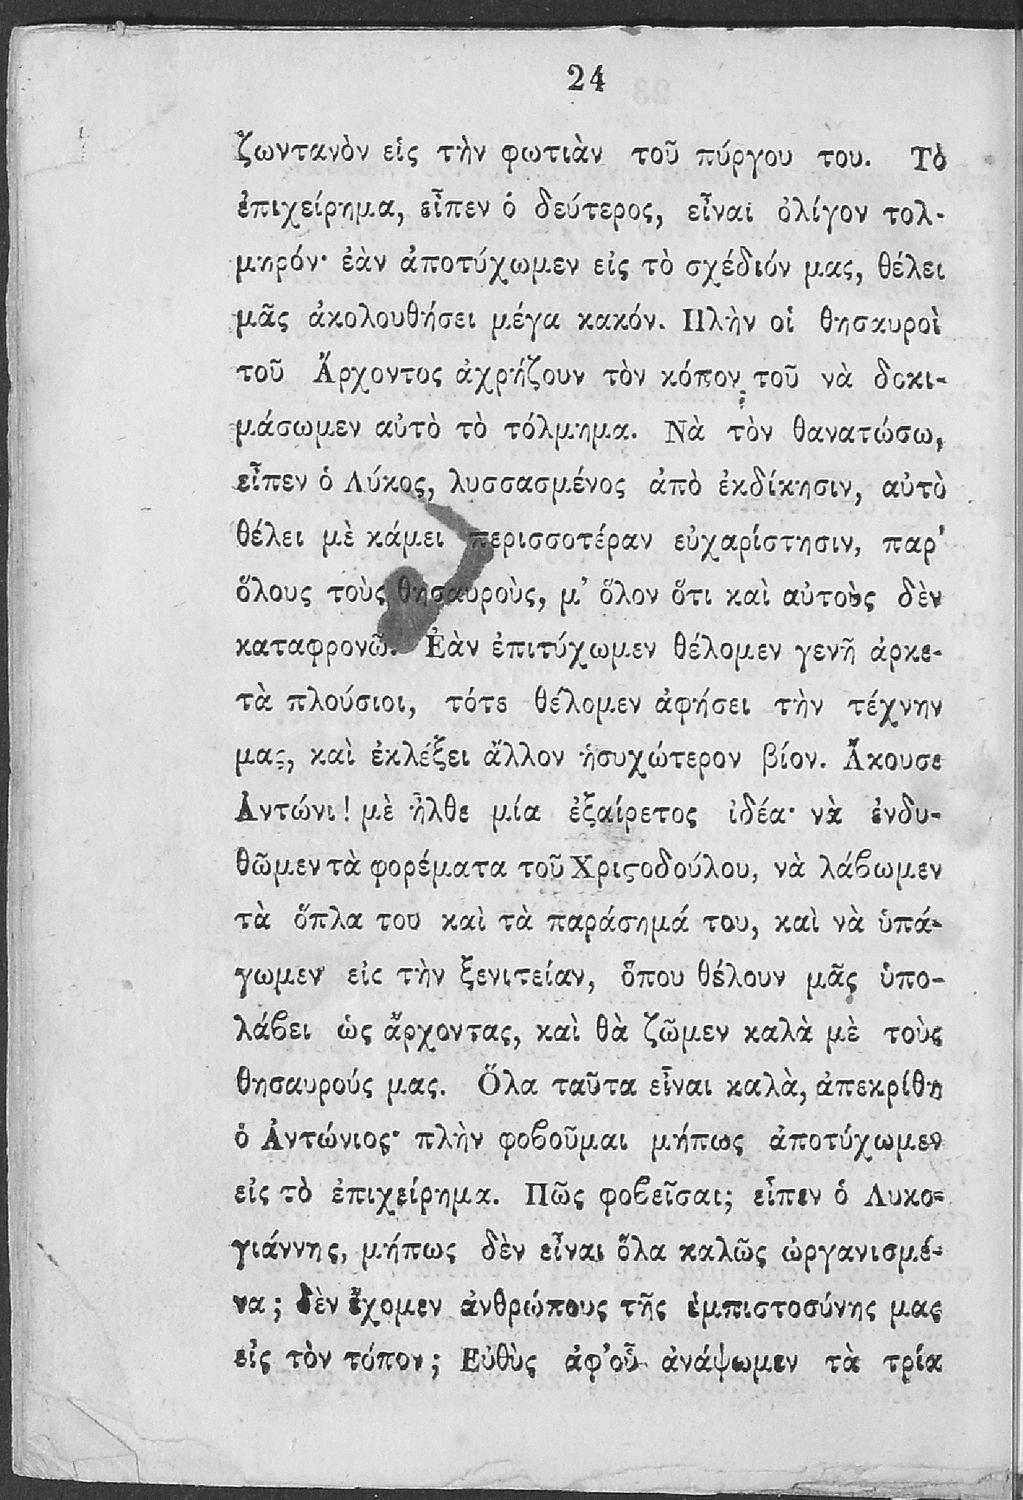 24
ζωντανὸν εἰς τὴν φωτιὰν τοῦ πύργου του. Τὸ
ἐπιχείρημα, εἶπεν ὁ δεύτερος, εἶναι ὀλίγον τολ-
μηρόν· ἐὰν ἀποτύχωμεν εἰς τὸ σχέδιόν μας, θέλει
μᾶς ἀκολουθήσει μέγα κακόν. Πλὴν οἱ θησαυροὶ
τοῦ Ἄρχοντος ἀχρήζουν τὸν κόπον τοῦ νὰ δοκι-
μάσωμεν αὐτὸ τὸ τόλμημα. Νὰ τὸν θανατώσω,
εἶπεν ὁ Λύκος, λυσσασμένος ἀπὸ ἐκδίκησιν, αὐτὸ
θέλει μὲ κάμει περισσοτέραν εὐχαρίστησιν, παρ'
ὅλους τοὺς θησαυροὺς, μ' ὅλον ὅτι καὶ αὐτοὺς δὲν
καταφρονῶ. Ἐὰν ἐπιτύχωμεν θέλομεν γενῆ ἀρκε-
τὰ πλούσιοι, τότε θέλομεν ἀφήσει τὴν τέχνην
μας, καὶ ἐκλέξει ἄλλον ἡσυχώτερον βίον. Ἄκουσε
Ἀντώνι! μὲ ἦλθε μία ἐξαίρετος ἰδέα· νὰ ἐνδυ-
θῶμεν τὰ φορέματα τοῦ Χριϛοδούλου, νὰ λάϐωμεν
τὰ ὅπλα του καὶ τὰ παράσημά του, καὶ νὰ ὑπά-
γωμεν εἰς τὴν ξενιτείαν, ὅπου θέλουν μᾶς ὑπο-
λάϐει ὡς ἄρχοντας, καὶ θὰ ζῶμεν καλὰ μὲ τοὺς
θησαυρούς μας. Ὅλα ταῦτα εἶναι καλὰ, ἀπεκρίθη
ὁ Ἀντώνιος· πλὴν φοϐοῦμαι μήπως ἀποτύχωμεν
εἰς τὸ ἐπιχείρημα. Πῶς φοϐεῖσαι; εἶπεν ὁ Λυκο-
γιάννης, μήπως δὲν εἶναι ὅλα καλῶς ὡργανισμέ-
να; δὲν ἔχομεν ἀνθρώπους τῆς ἐμπιστοσύνης μας
εἰς τὸν τόπον; Εὐθὺς ἀφ'οὗ ἀνάψωμεν τὰ τρία